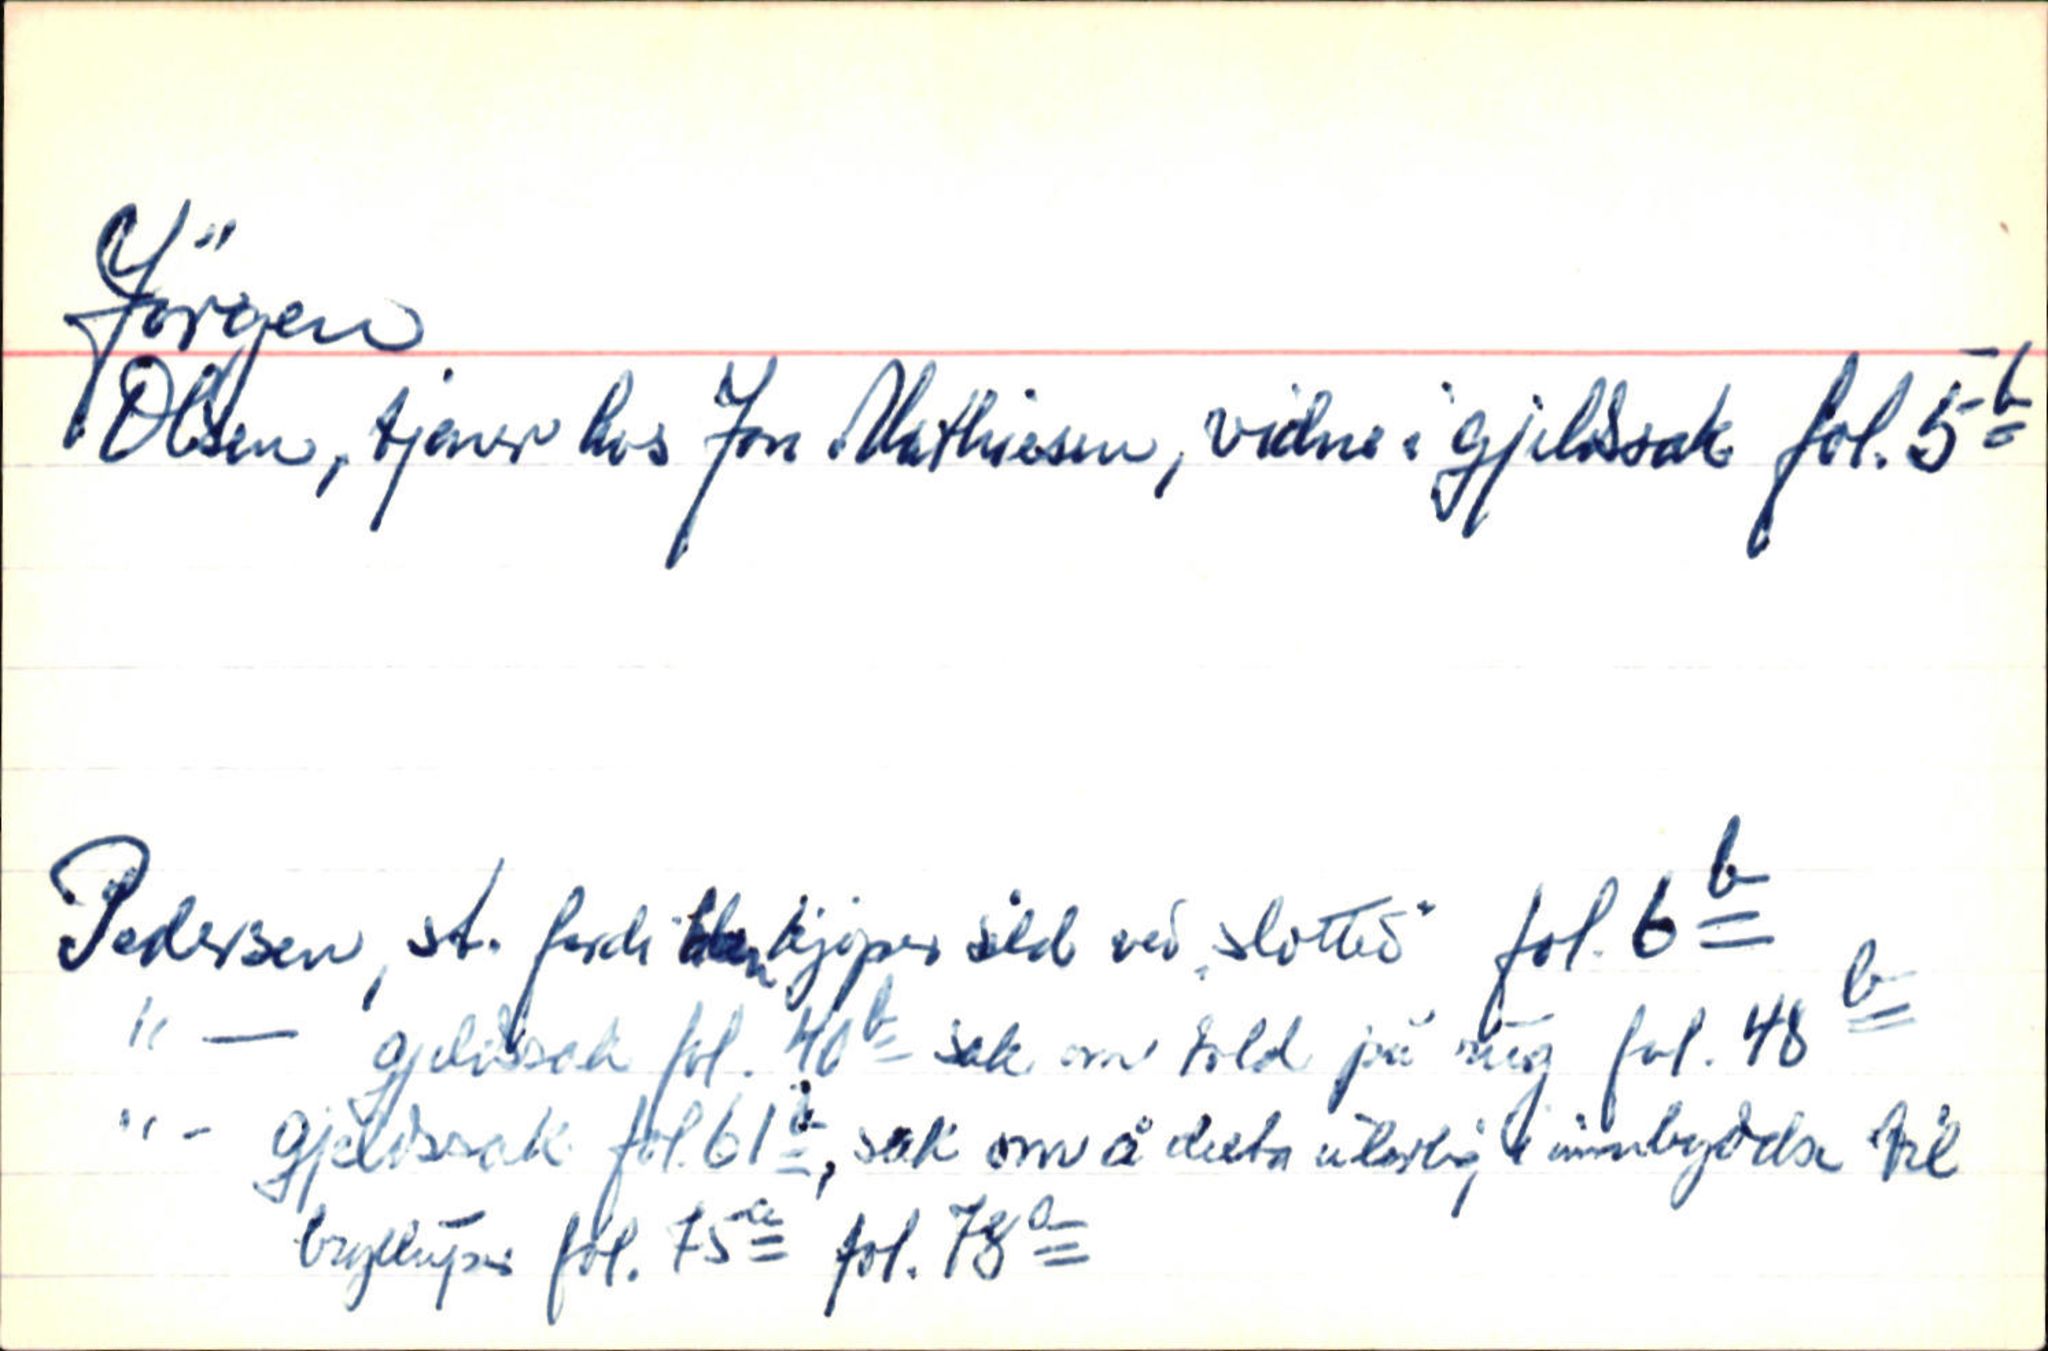 Jörgen
Olsen, tjener hos Jon Mathiesen, vidne i gjeldssak fol. 5b
Pedersen, st. kjöper sild ved "slottet" fol. 6b
" — gjeldssak fol. 40b sak om told på rug fol. 48b
" - Gjeldssak fol. 61b, sak om å delta innbydelse til
brylluper fol. 75a fol. 78a